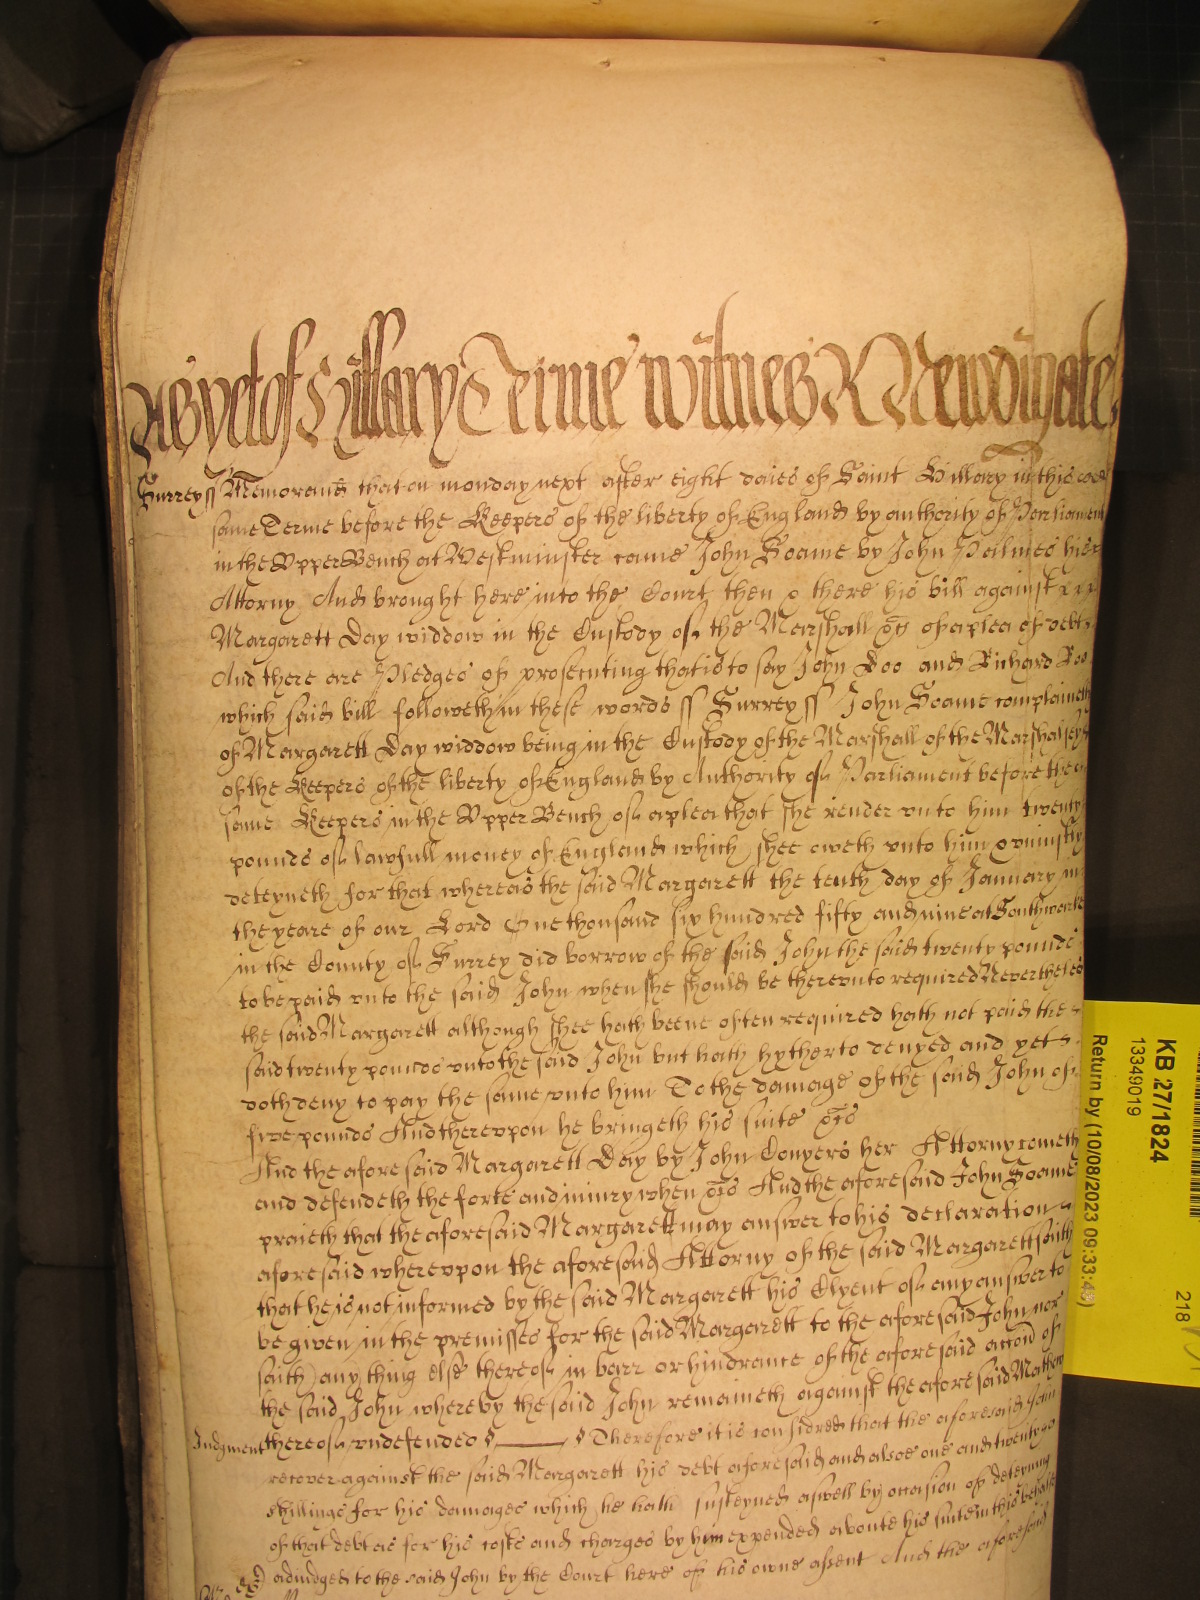 As yet of Hillary Terme witnes R Newdigate
Surrey ss Memorand that on monday next after eight daies of Saint Hillary in this
same Terme before the Keepers of the liberty of England by authority of Parliament
in the Upper Bench at Westminster came John Soame by John Palmes his
Attorny And brought here into the Court then & there his bill against
Margarett Day widdow in the Custody of the Marshall &c of a plea of debt
And there are Pledges of prosecuting that is to say John Doo and Richard Roo
which said bill followeth in these words ss Surrey ss John Soame complaineth
of Margarett Day widdow being in the Custody of the Marshall of the Marshalsey
of the Keepers of the liberty of England by Authority of Parliament before the
same Keepers in the Upper Bench of a plea that she render unto him twenty
pounds of lawfull money of England which shee oweth unto him & uniustly
deteyneth for that whereas the said Margarett the tenth day of January in
the yeare of our Lord One thousand six hundred fifty and nine at Southwarke
in the County of Surrey did borrow of the said John the said twenty pounds
to be paid unto the said John when she should be thereunto required Neverthelesse
the said Margarett although shee hath beene often required hath not paid the
said twenty pounds unto the said John but hath hytherto denyed and yet
doth deny to pay the same unto him To the damage of the said John of
five pounds And thereupon he bringeth his suite &c
And the aforesaid Margarett Day by John Conyers her Attorny cometh
and defendeth the force and iniury when &c And the aforesaid John Soame
praieth that the aforesaid Margarett may answer to his declaration
aforesaid whereupon the aforesaid Attorny of the said Margarett saith
that he is not informed by the said Margarett his Clyent of any answer to
be given in the premisses for the said Margarett to the aforesaid John nor
saith any thing else thereof in barr or hindrance of the aforesaid accon of
the said John whereby the said John remaineth against the aforesaid
Judgment thereof undefended Therefore it is considred that the aforesaid John
recover against the said Margarett his debt aforesaid and alsoe one and twenty
shillings for his damages which he hath susteyned aswell by occasion of deteyning
of that debt as for his costs and charges by him expended aboute his suite in this behalfe
adiudged to the said John by the Court here of his owne assent And the aforesaid
KB 27/1824
13349019
Return by (10/08/2023 09:33:43)
218